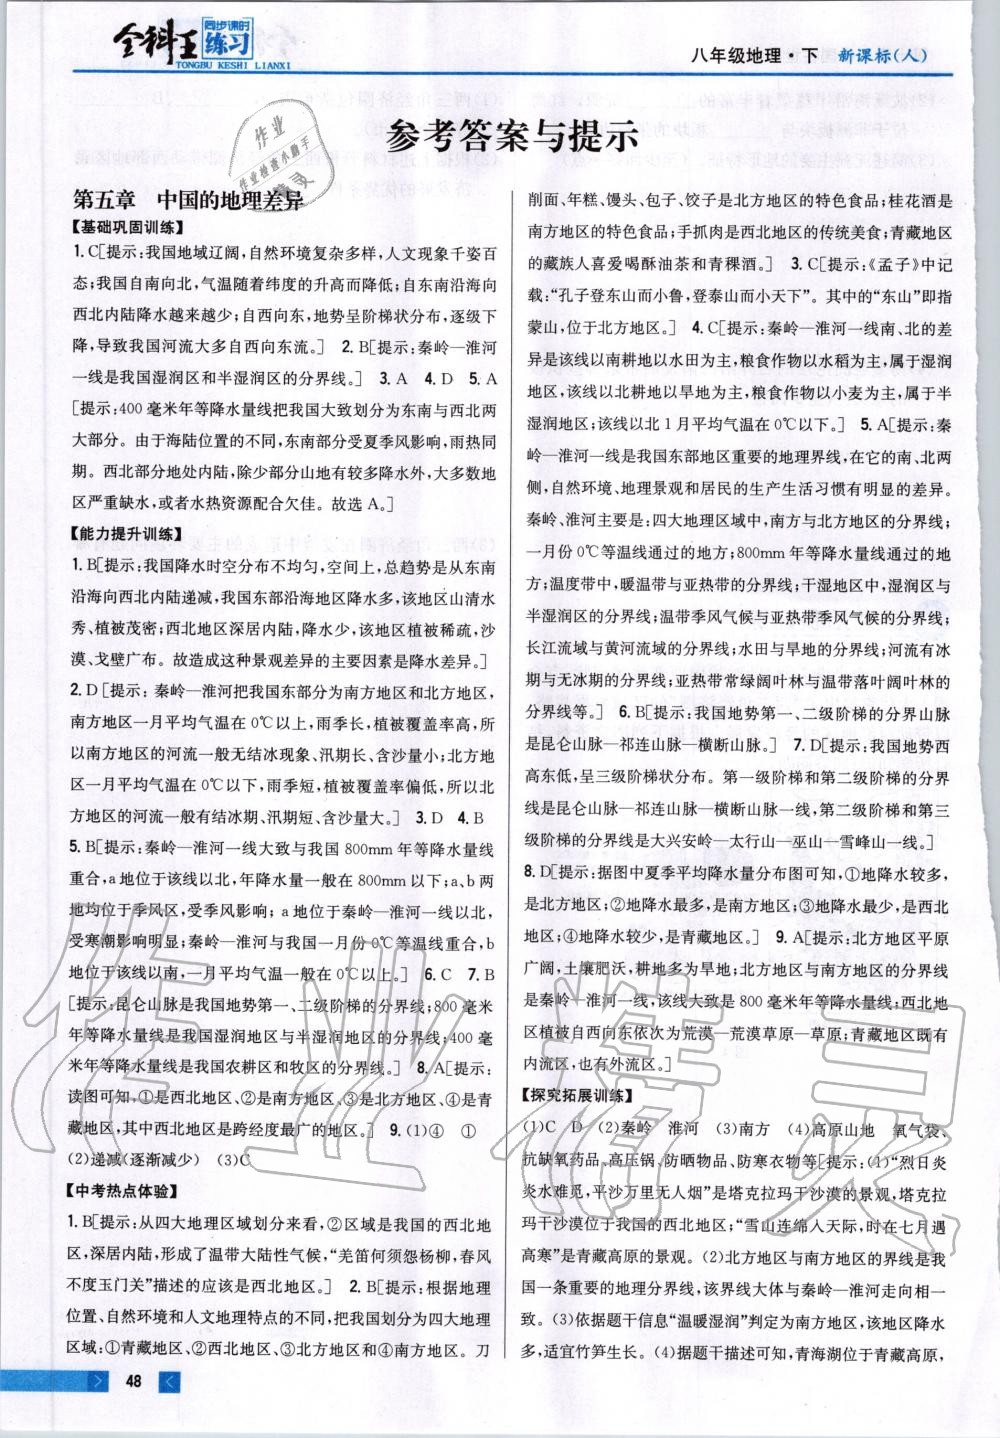 全科王 同步课时练习
TONGBU KESHI LIANXI
八年级地理·下 新课标(人)
参考答案与提示
第五章 中国的地理差异
【基础巩固训练】
1. C[提示:我国地域辽阔,自然环境复杂多样,人文现象千姿百
态;我国自南向北,气温随着纬度的升高而降低;自东南沿海向
西北内陆降水越来越少;自西向东,地势呈阶梯状分布,逐级下
降,导致我国河流大多自西向东流。] 2. B[提示:秦岭—淮河
一线是我国湿润区和半湿润区的分界线。] 3. A 4. D 5. A
[提示:400 毫米年等降水量线把我国大致划分为东南与西北两
大部分。由于海陆位置的不同,东南部分受夏季风影响,雨热同
期。西北部分地处内陆,除少部分山地有较多降水外,大多数地
区严重缺水,或者水热资源配合欠佳。故选 A。]
【能力提升训练】
1. B[提示:我国降水时空分布不均匀,空间上,总趋势是从东南
沿海向西北内陆递减,我国东部沿海地区降水多,该地区山清水
秀、植被茂密;西北地区深居内陆,降水少,该地区植被稀疏,沙
漠、戈壁广布。故造成这种景观差异的主要因素是降水差异。]
2. D[提示:秦岭—淮河把我国东部分为南方地区和北方地区,
南方地区一月平均气温在 0℃以上,雨季长,植被覆盖率高,所
以南方地区的河流一般无结冰现象、汛期长、含沙量小;北方地
区一月平均气温在 0℃以下,雨季短,植被覆盖率偏低,所以北
方地区的河流一般有结冰期、汛期短、含沙量大。] 3. D 4. B
5. B[提示:秦岭—淮河一线大致与我国 800mm 年等降水量线
重合,a 地位于该线以北,年降水量一般在 800mm 以下;a、b 两
地均位于季风区,受季风影响;a 地位于秦岭—淮河一线以北,
受寒潮影响明显;秦岭—淮河与我国一月份 0℃等温线重合,b
地位于该线以南,一月平均气温一般在 0℃以上。] 6. C 7. B
[提示:昆仑山脉是我国地势第一、二级阶梯的分界线;800 毫米
年等降水量线是我国湿润地区与半湿润地区的分界线;400 毫
米年等降水量线是我国农耕区和牧区的分界线。] 8. A[提示:
读图可知,①是西北地区、②是南方地区、③是北方地区、④是青
藏地区,其中西北地区是跨经度最广的地区。] 9. (1)④ ①
(2)递减(逐渐减少) (3)C
【中考热点体验】
1. B[提示:从四大地理区域划分来看,②区域是我国的西北地
区,深居内陆,形成了温带大陆性气候,“羌笛何须怨杨柳,春风
不度玉门关”描述的应该是西北地区。] 2. B[提示:根据地理
位置、自然环境和人文地理特点的不同,把我国划分为四大地理
区域:①青藏地区、②西北地区、③北方地区和④南方地区。刀
削面、年糕、馒头、包子、饺子是北方地区的特色食品;桂花酒是
南方地区的特色食品;手抓肉是西北地区的传统美食;青藏地区
的藏族人喜爱喝酥油茶和青稞酒。] 3. C[提示:《孟子》中记
载:“孔子登东山而小鲁,登泰山而小天下”。其中的“东山”即指
蒙山,位于北方地区。] 4. C[提示:秦岭—淮河一线南、北的差
异是该线以南耕地以水田为主,粮食作物以水稻为主,属于湿润
地区,该线以北耕地以旱地为主,粮食作物以小麦为主,属于半
湿润地区;该线以北 1 月平均气温在 0℃以下。] 5. A[提示:秦
岭—淮河一线是我国东部地区重要的地理界线,在它的南、北两
侧,自然环境、地理景观和居民的生产生活习惯有明显的差异。
秦岭、淮河主要是:四大地理区域中,南方与北方地区的分界线;
一月份 0℃等温线通过的地方;800mm 年等降水量线通过的地
方;温度带中,暖温带与亚热带的分界线;干湿地区中,湿润区与
半湿润区的分界线;温带季风气候与亚热带季风气候的分界线;
长江流域与黄河流域的分界线;水田与旱地的分界线;河流有冰
期与无冰期的分界线;亚热带常绿阔叶林与温带落叶阔叶林的
分界线等。] 6. B[提示:我国地势第一、二级阶梯的分界山脉
是昆仑山脉—祁连山脉—横断山脉。] 7. D[提示:我国地势西
高东低,呈三级阶梯状分布。第一级阶梯和第二级阶梯的分界
线是昆仑山脉—祁连山脉—横断山脉一线,第二级阶梯和第三
级阶梯的分界线是大兴安岭—太行山—巫山—雪峰山一线。]
8. D[提示:据图中夏季平均降水量分布图可知,①地降水较多,
是北方地区;②地降水最多,是南方地区;③地降水最少,是西北
地区;④地降水较少,是青藏地区。] 9. A[提示:北方地区平原
广阔,土壤肥沃,耕地多为旱地;北方地区与南方地区的分界线
是秦岭—淮河一线,该线大致是 800 毫米年等降水量线;西北地
区植被自西向东依次为荒漠—荒漠草原—草原;青藏地区既有
内流区,也有外流区。]
【探究拓展训练】
(1)C D (2)秦岭 淮河 (3)南方 (4)高原山地 氧气袋、
抗缺氧药品、高压锅、防晒物品、防寒衣物等[提示:(1)“烈日炎
炎水难觅,平沙万里无人烟”是塔克拉玛干沙漠的景观,塔克拉
玛干沙漠位于我国的西北地区;“雪山连绵入天际,时在七月遇
高寒”是青藏高原的景观。(2)北方地区与南方地区的界线是我
国一条重要的地理分界线,该界线大体与秦岭—淮河走向相一
致。(3)依据题干信息“温暖湿润”判定为南方地区,该地区降水
多,适宜竹笋生长。(4)据题干描述可知,青海湖位于青藏高原,
48
作业
作业检查小助手
精灵
作业精灵